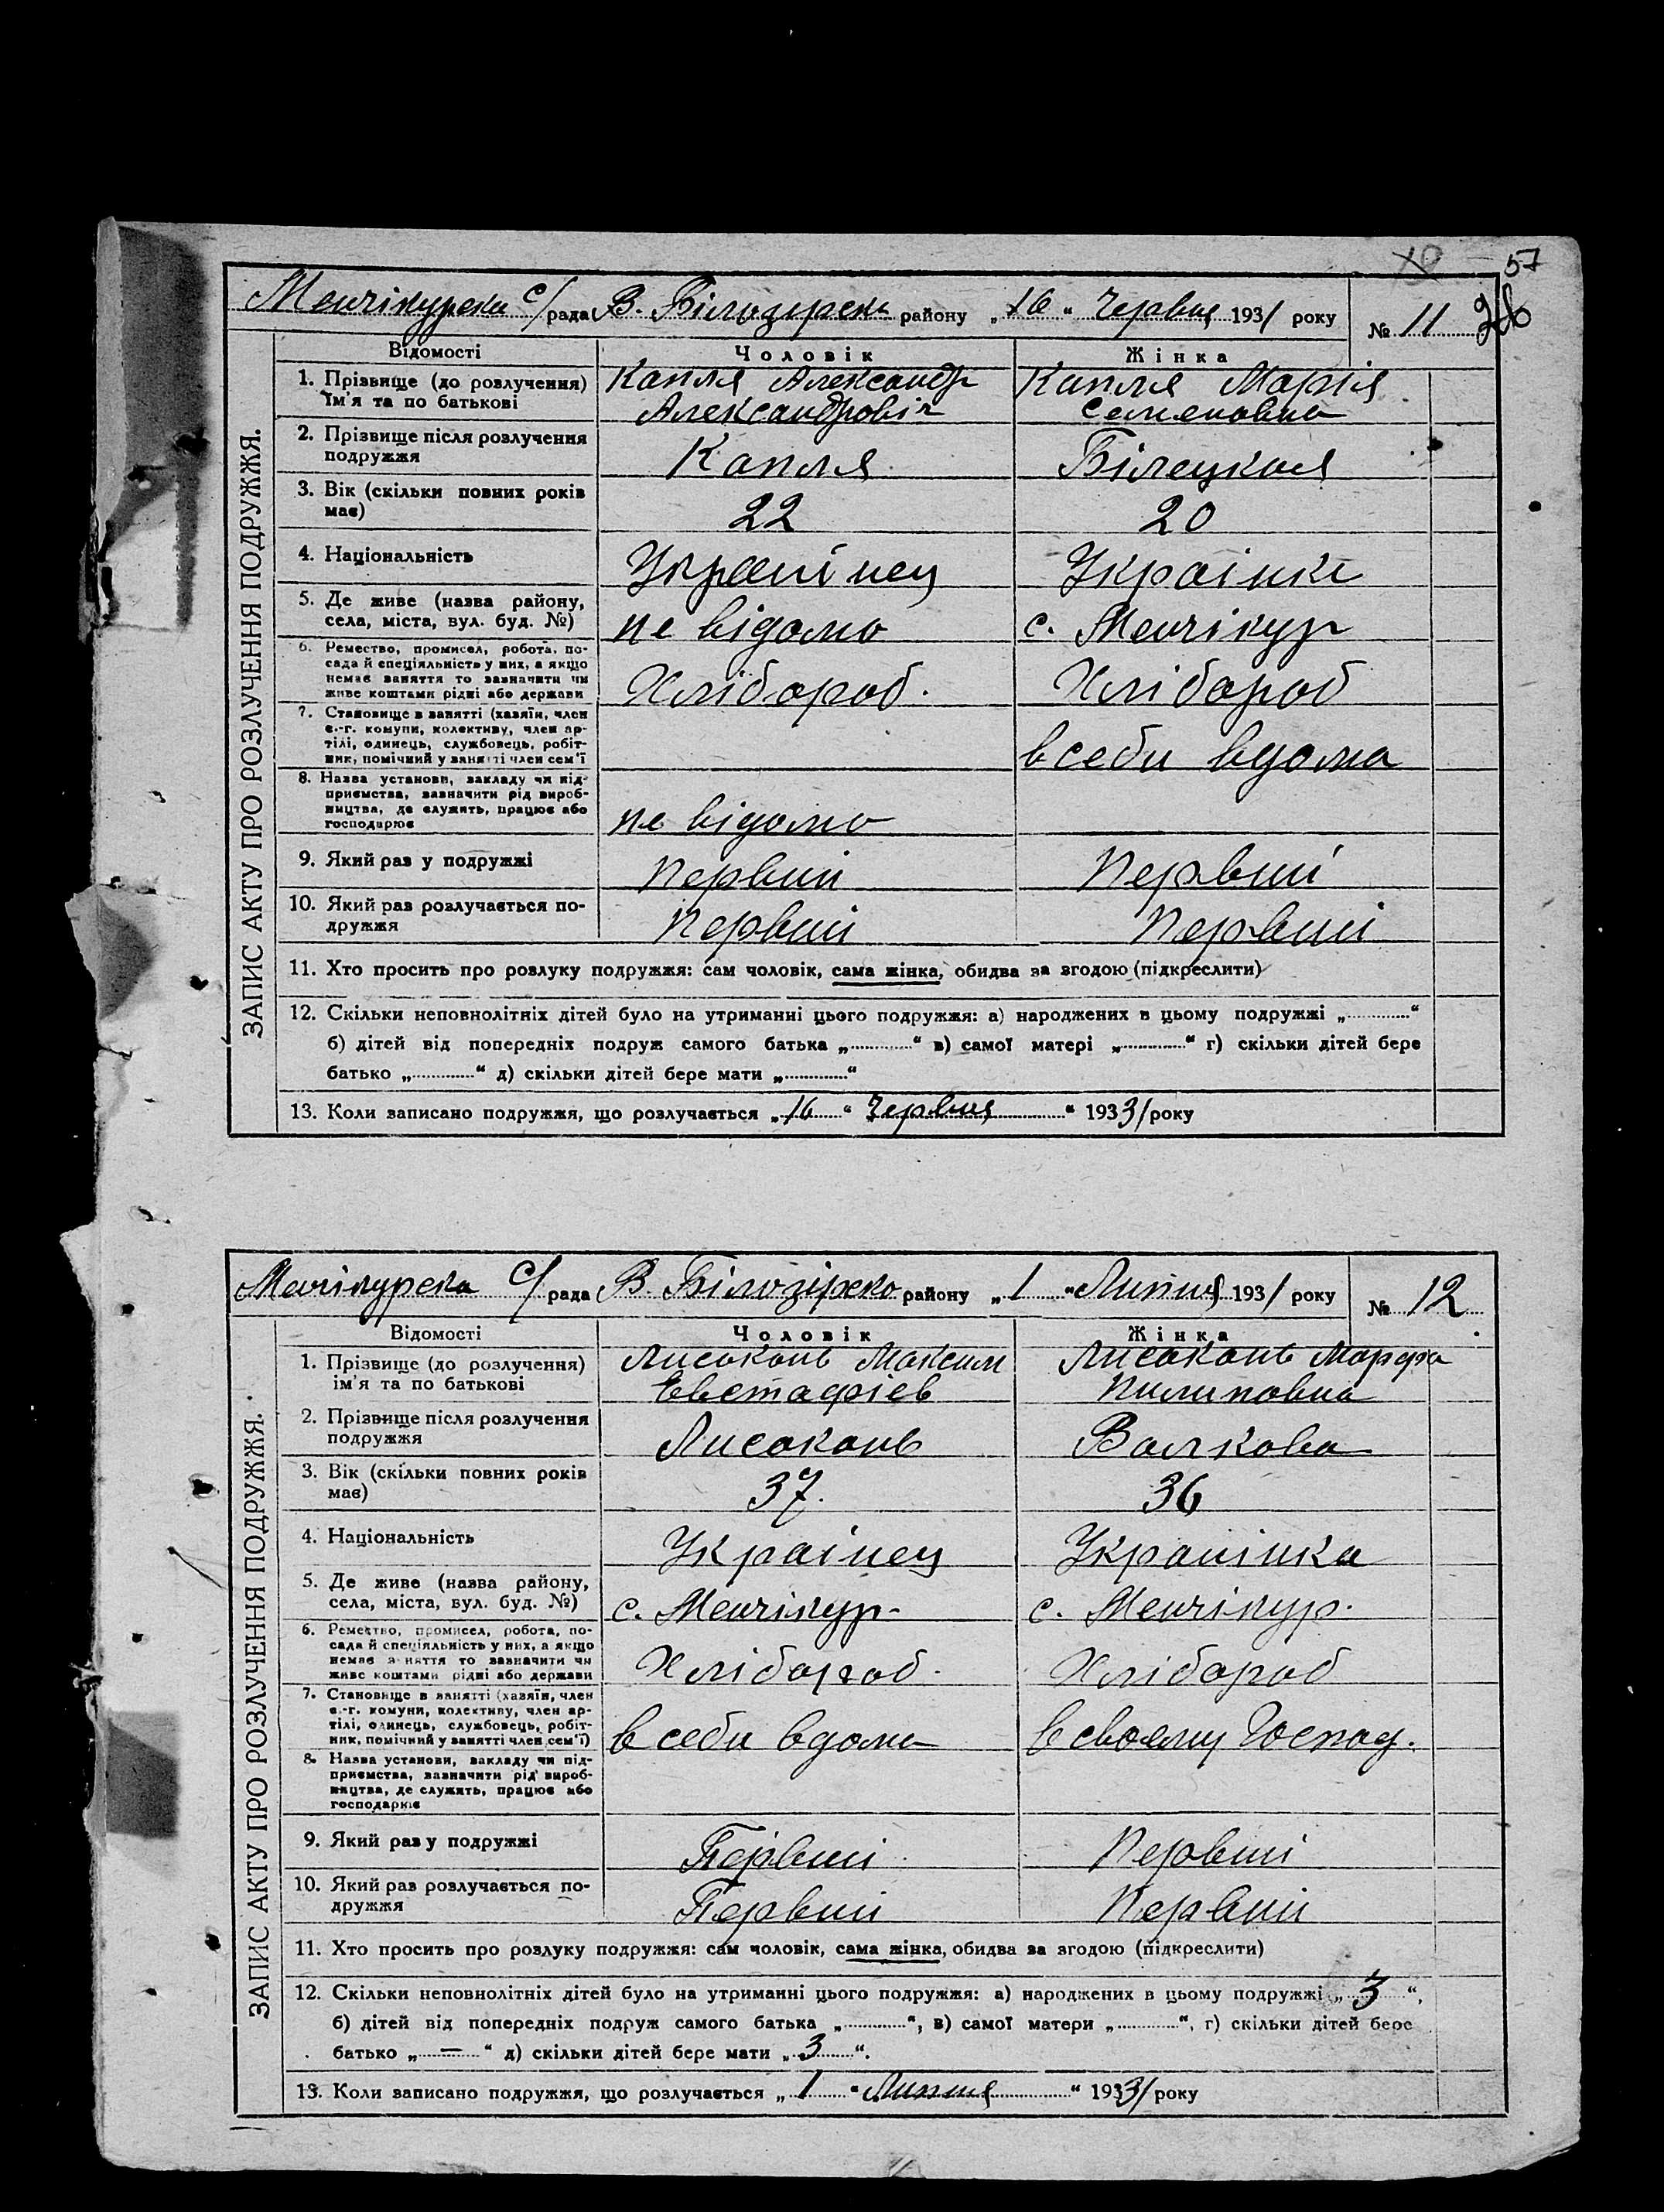 57
Менчікурска с/рада В. Білозірська району „16“ Червня 1931 року № 11
ЗАПИС АКТУ ПРО РОЗЛУЧЕННЯ ПОДРУЖЖЯ.
Відомості Чоловік Жінка
1. Прізвище (до розлучення) Капля Александр Капля Марія
їм'я та по батькові Александровіч Семеновна
2. Прізвище після розлучення
подружжя Капля Білецкая
3. Вік (скільки повних років
має) 22 20
4. Національність Україінец Українка
5. Де живе (назва району,
села, міста, вул. буд. №) не відомо с. Менчікур
6. Ремество, промисел, робота, по-
сада й спеціяльність у них, а якщо
немає заняття то зазначити чи
живе коштами рідні або держави Хлібороб. Хлібороб
7. Становище в занятті (хазяїн, член
с.-г. комуни, колективу, член ар-
тілі, одинець, службовець, робіт-
ник, помічний у занятті член сем'ї вседи вдома
8. Назва установи, закладу чи під-
приємства, зазначити рід вироб-
ництва, де служить, працює або
господарює не відомо
9. Який раз у подружжі Первий Первий
10. Який раз розлучається по-
дружжя Первий Первий
11. Хто просить про розлуку подружжя: сам чоловік, сама жінка, обидва за згодою (підкреслити)
12. Скільки неповнолітніх дітей було на утриманні цього подружжя: а) народжених в цьому подружжі „............“
б) дітей від попередніх подруж самого батька „............“ в) самої матері „............“ г) скільки дітей бере
батько „............“ д) скільки дітей бере мати „............“
13. Коли записано подружжя, що розлучається „16“ Червня “ 1931 року
Менчікурска с/рада В. Білозірско району „1“ Липня 1931 року № 12
ЗАПИС АКТУ ПРО РОЗЛУЧЕННЯ ПОДРУЖЖЯ.
Відомості Чоловік Жінка
1. Прізвище (до розлучення) Лисоконь Максим Лисоконь Марфа
ім'я та по батькові Евстафіев Пилиповна
2. Прізвище після розлучення
подружжя Лисоконь Валкова
3. Вік (скільки повних років
має) 37. 36
4. Національність Українец Украиінка
5. Де живе (назва району,
села, міста, вул. буд. №) с. Менчікур. с. Менчікур.
6. Ремество, промисел, робота, по-
сада й спеціяльність у них, а якщо
немає заняття то зазначити чи
живе коштами рідні або держави Хлібороб. Хлібороб
7. Становище в занятті (хазяїн, член
с.-г. комуни, колективу, член ар-
тілі, одинець, службовець, робіт-
ник, помічний у занятті член сем'ї) в себи вдома в своему Господ.
8. Назва установи, закладу чи під-
приємства, зазначити рід вироб-
ництва, де служить, працює або
господарює
9. Який раз у подружжі Первий Первий
10. Який раз розлучається по-
дружжя Первий Первий
11. Хто просить про розлуку подружжя: сам чоловік, сама жінка, обидва за згодою (підкреслити)
12. Скільки неповнолітніх дітей було на утриманні цього подружжя: а) народжених в цьому подружжі „3“,
б) дітей від попередніх подруж самого батька „............“, в) самої матери „............“, г) скільки дітей бере
батько „—“ д) скільки дітей бере мати „3“.
13. Коли записано подружжя, що розлучається „1“ Липня “ 1931 року